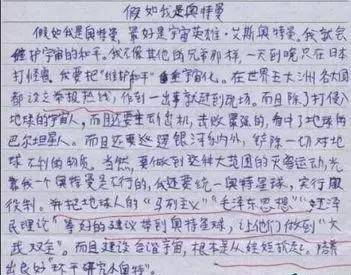 假如我是奥特曼
假如我是奥特曼，最好是宇宙英雄·艾斯奥特曼，我就会
维护宇宙的和平。我不像其他的兄弟那样，一天到晚只在日本
打怪兽，我要把“维护和平”宇宙化。在世界五大洲各大国
都设立举报热线，作到一出事就赶到现场。而且除了打侵入
地球的宇宙人，而且还要主动出机，去收罗强的，看中了地球的
巴尔坦星人。而且还要巡逻银河系内外，铲除一切对地
球不利的物质。当然，要做到这种大范围的灭害运动，光
靠我一个奥特曼是不行的，我还要统一奥特星球，实行服
役制。并把地球人的“马列主义”“毛泽东思想”“邓泽
民理论”等好的建议带到奥特星球，让他们做到“大
战双全”。而且建设合谐宇宙，根本是从娃娃抓起，培养
出良好“环平研究小奥特”。